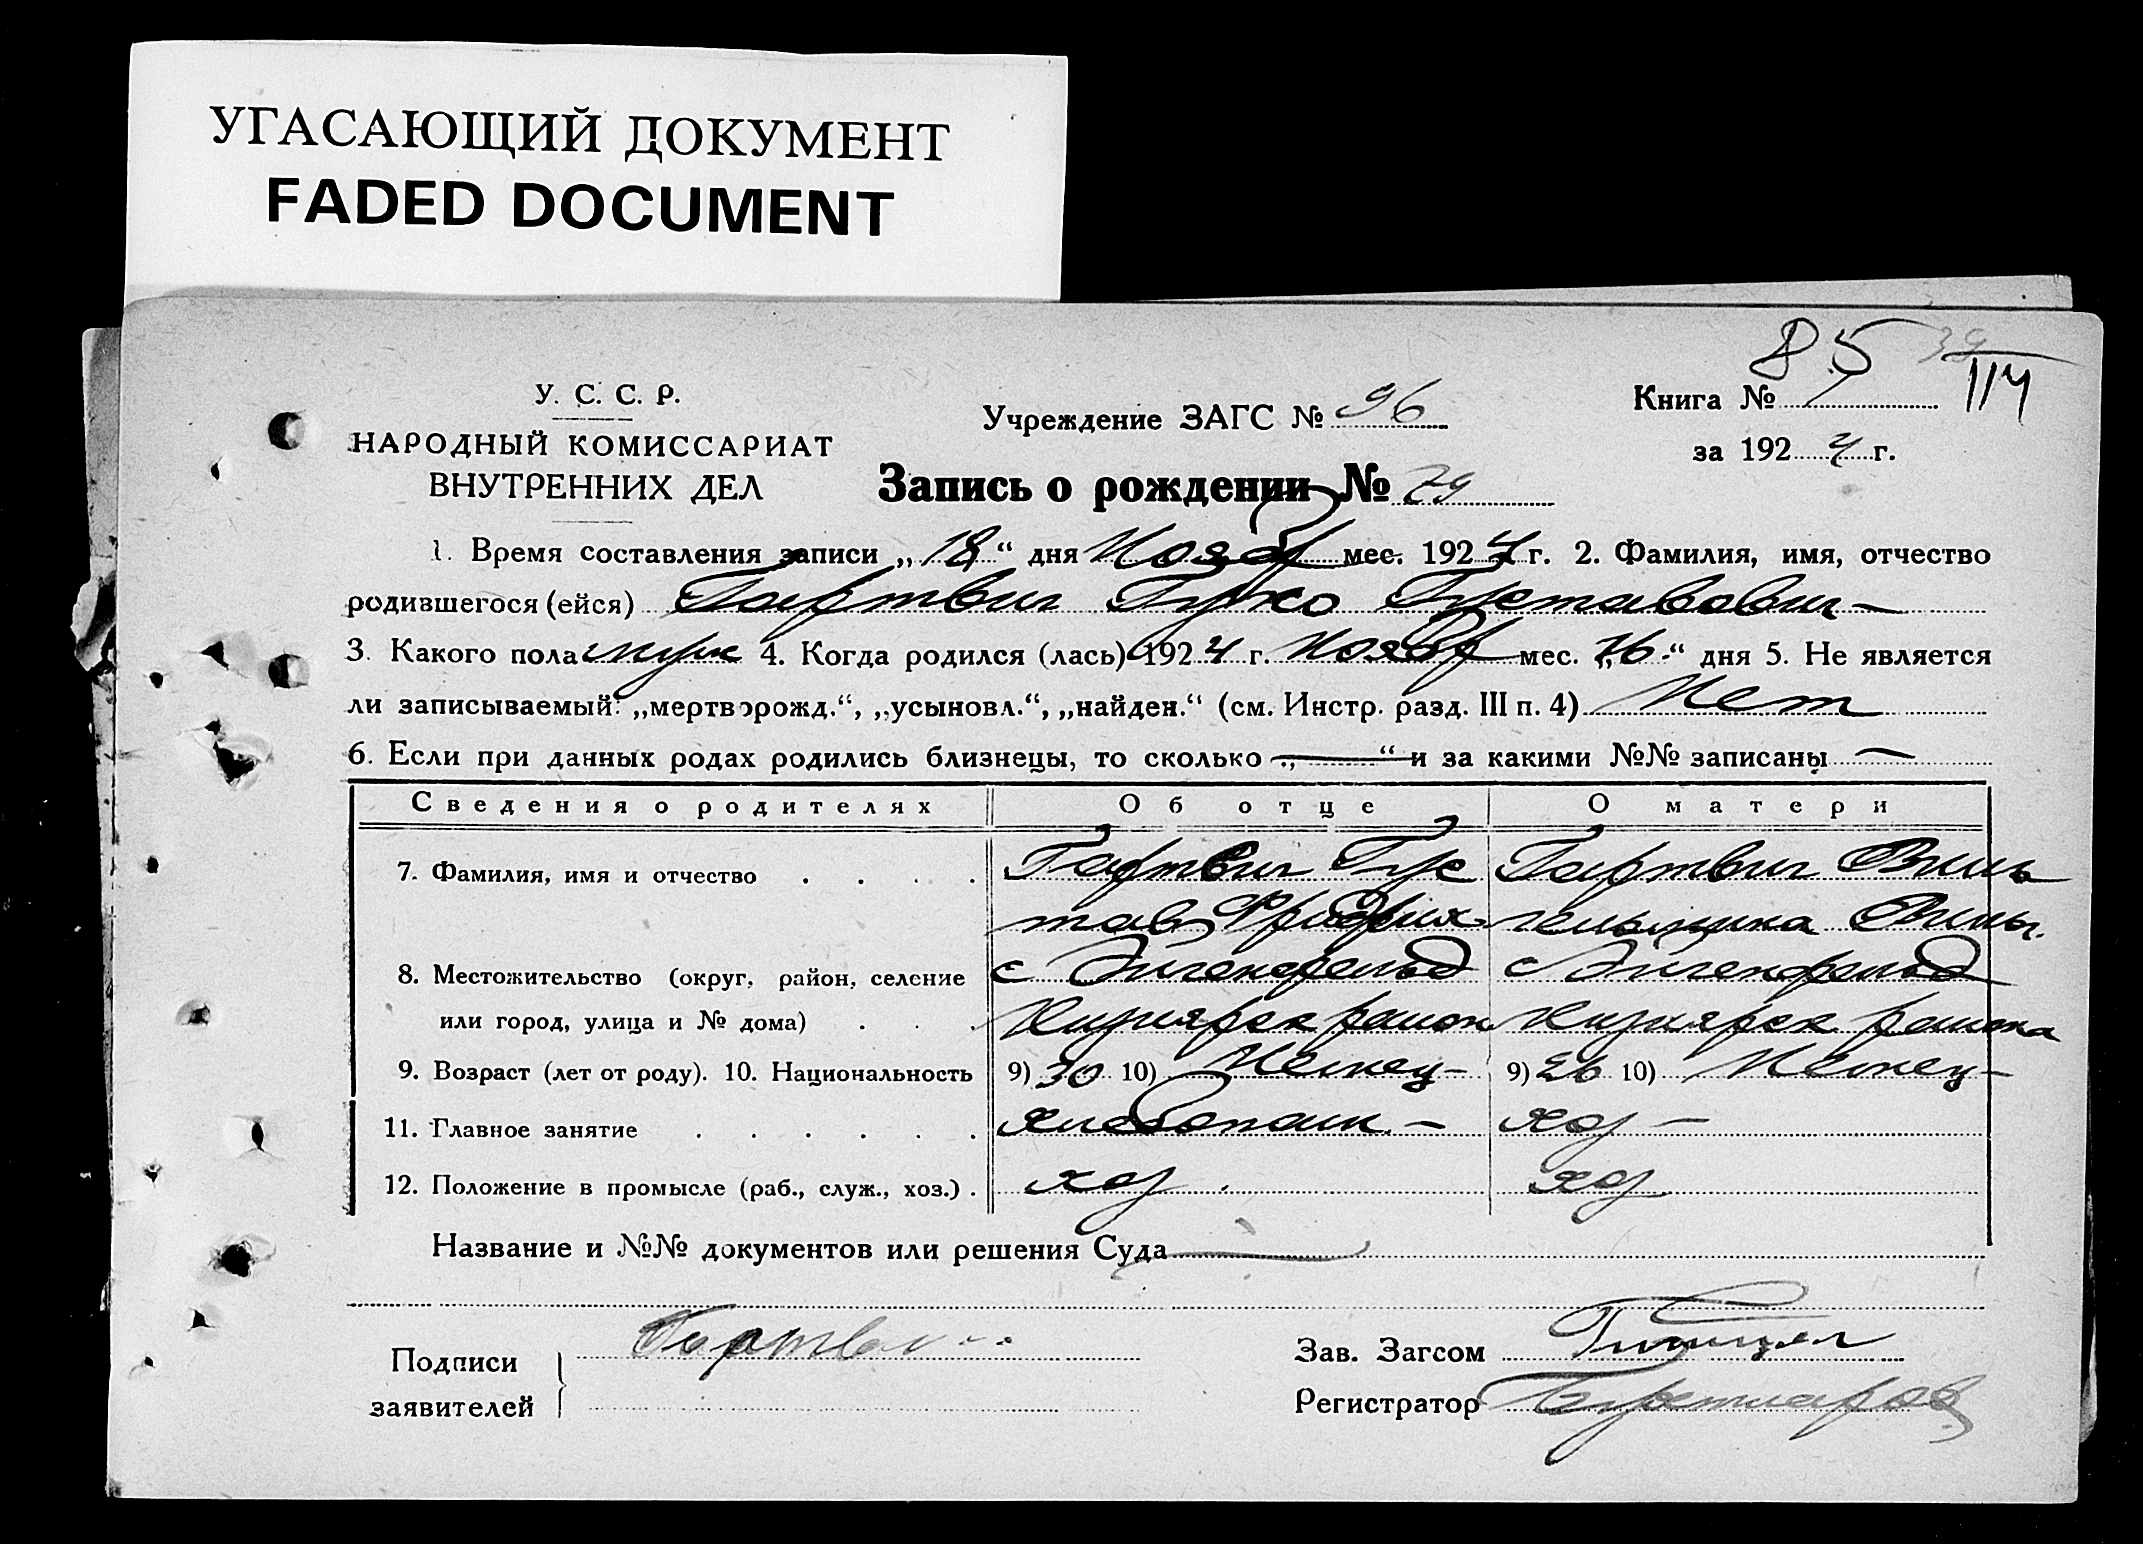 УГАСАЮЩИЙ ДОКУМЕНТ
FADED DOCUMENT
85 39
114
У. С. С. Р.
НАРОДНЫЙ КОМИССАРИАТ
ВНУТРЕННИХ ДЕЛ
Учреждение ЗАГС № 96
Книга №
за 1924 г.
Запись о рождении № 79
1. Время составления записи „18“ дня Нояб мес. 1924 г. 2. Фамилия, имя, отчество
родившегося (ейся) Гартвиг Гуго Густавович —
3. Какого пола муж 4. Когда родился (лась) 1924 г. Нояб мес. „16“ дня 5. Не является
ли записываемый: „мертворожд.“, „усыновл.“, „найден.“ (см. Инстр. разд. III п. 4) Нет
6. Если при данных родах родились близнецы, то сколько „—“ и за какими №№ записаны —
Сведения о родителях Об отце О матери
7. Фамилия, имя и отчество Гартвиг Гус Гартвиг Виль
тав Фридрих гельмина Вильг.
8. Местожительство (округ, район, селение с Эйгенфельд с Эйгенфельд
или город, улица и № дома) район района
9. Возраст (лет от роду). 10. Национальность 9) 30 10) Немец — 9) 26 10) Немец —
11. Главное занятие Хлебопаш — хоз —
12. Положение в промысле (раб., служ., хоз.) хоз хоз
Название и №№ документов или решения Суда —
Подписи
заявителей
Гартвиг
Зав. Загсом
Регистратор